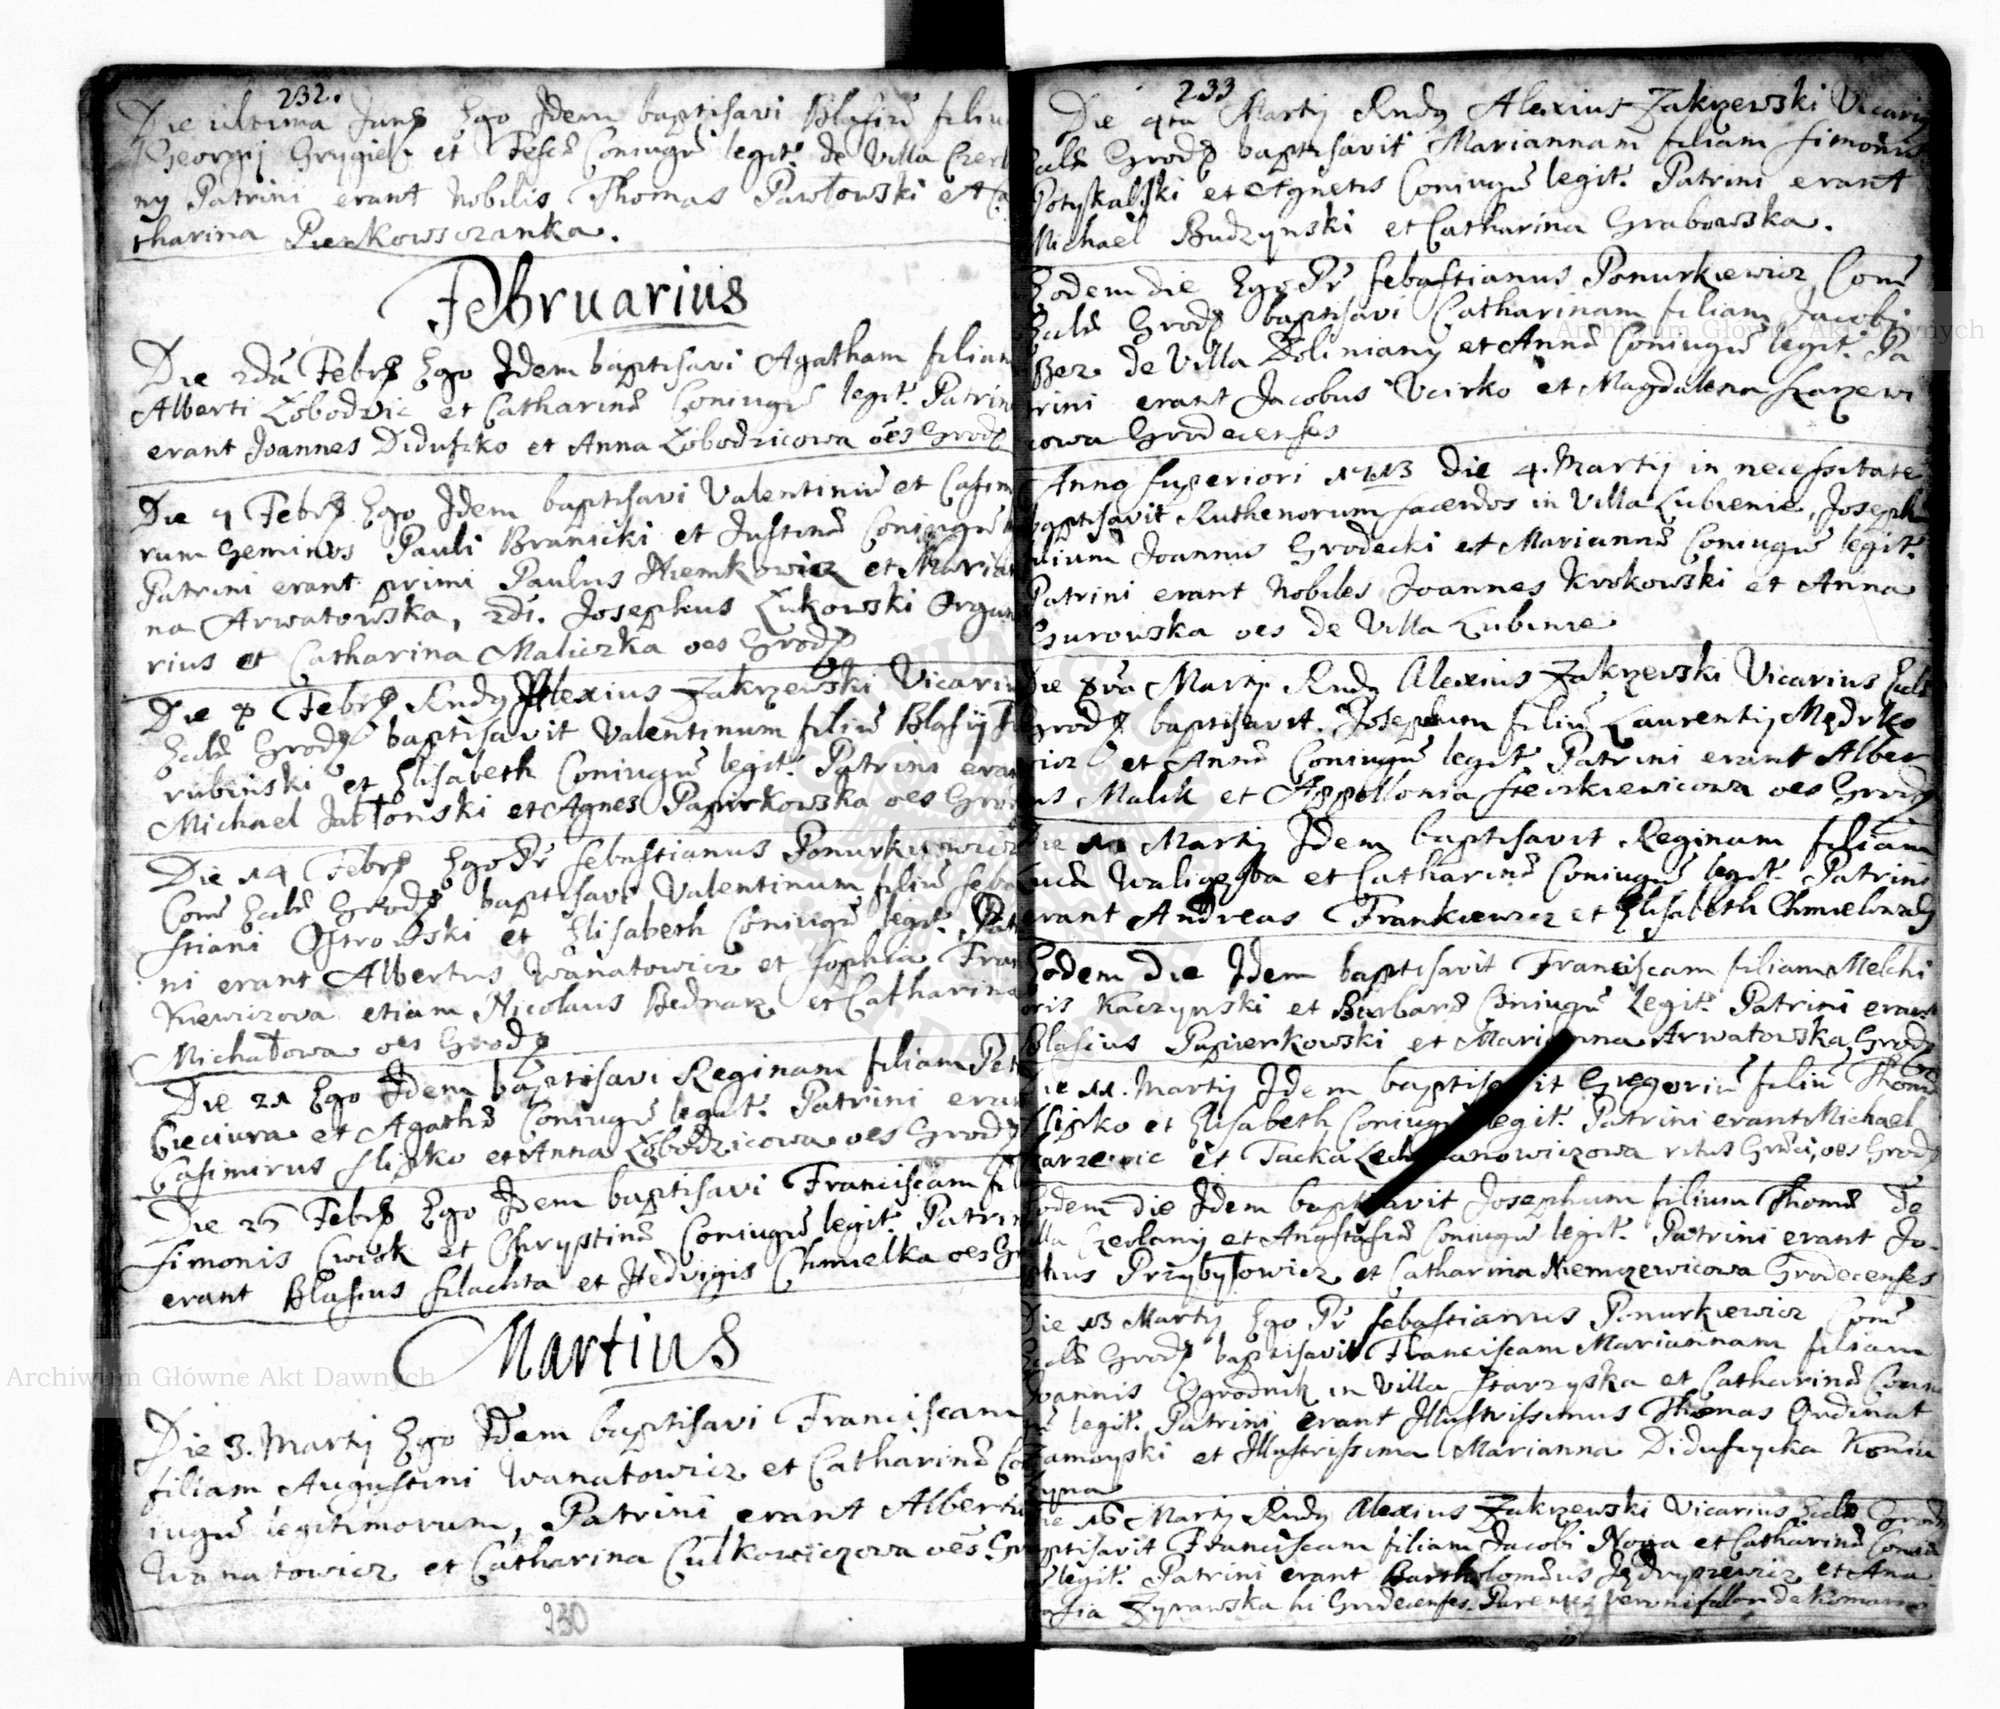 232.
Die ultima Jany Ego Idem baptisavi Blasiũ filiu
Georgij Grygiel et Tesc Coniugũ legit: de Villa Czerl
ny Patrini erant Nobilis Thomas Pawłowski et Ca
tharina Pierkowsczanka.
Februarius
Die 2dã Febrς Ego Idem baptisavi Agatham filiam
Alberti Łobodzic et Catharinæ Coniugũ legit: Patrini
erant Joannes Diduszko et Anna Łobodzicowa oẽs Grodς
Die 9 Febrς Ego Idem baptisavi Valentinũ et Casim
rum Geminos Pauli Branicki et Justinæ Coniugũ
Patrini erant primi Paulus Niemkowicz et Marian
na Arwatowska, 2di. Josephus Łukowski Organ
rius et Catharina Maliczka oes Grodς
Die Febrς Rndς Alexius Zakrzewski Vicarius
Ecclæ Grodς baptisavit Valentinum filiũ Blasij
rubinski et Elisabeth Coniugũ legit: Patrini eran
Michael Jabłonski et Agnes Papirkowska oes Grod
Die 14 Febrς Ego Pr Sebastianus Ponurkiewicz
Com Ecclæ Grodς baptisavi Valentinum filiũ Seba
stiani Ostrowski et Elisabeth Coniugũ legit: Patri
ni erant Albertus Iwanatowicz et Sophia Fran
kiewiczova etiam Nicolaus Bednarz et Catharina
Michałowa oes Grodς
Die 21 Ego Idem baptisavi Reginam filiam Pet
Cieciura et Agathæ Coniugũ legit: Patrini eran
Casimirus Slipko et Anna Łobodzicowa oes Grodς
Die 26 Febrς Ego Idem baptisavi Franciscam fil
Simonis Cwiok et Chrystinæ Coniugũ legit: Patrin
erant Blasius Slachta et Hedvigis Chmielka oes Gr
Martius
Die 3. Martij Ego Idem baptisavi Franciscam
filiam Augustini Iwanatowicz et Catharinæ Co
iugũ legitimorum, Patrini erant Albertu
Iwanatowicz et Catharina Culkowiczowa oẽs Gr
230
233
Die 4ta Martij Rndς Alexius Zakrzewski Vicariς
Ecclæ Grodς baptisavit Mariannam filiam Simonis
Potyskalski et Agnetis Coniugũ legit: Patrini erant
Michael Budzynski et Catharina Grabowska.
Eodem die Ego Pr Sebastianus Ponurkiewicz Com
Ecclæ Grodς baptisavi Catharinam filiam Jacobi
Bez de Villa Doliniany et Annæ Coniugũ legit: Pa
trini erant Jacobus Wcirko et Magdalena
cowa Grodecenses
Anno Superiori 1713 die 4. Martij in necessitate
baptisavit Ruthenorum Sacerdos in Villa Lubienie, Joseph
filium Joannis Grodecki et Mariannæ Coniugũ legit:
Patrini erant Nobiles Joannes Krokowski et Anna
Gurowska oes de Villa Lubinie
Die 8va Martij Rndς Alexius Zakrzewski Vicarius Eccl
Grodς baptisavit Josephum filiũ Laurentij Mędrko
wicz et Annæ Coniugũ legit: Patrini erant Alber
us Malik et Appollonia Sieczkiewicowa oes Grodς
Die Martij Idem baptisavit Reginam filiam
Lucæ Waligęsba et Catharinæ Coniugũ legit: Patrini
erant Andreas Frankiewicz et Elisabeth Chmielowsky
Eodem Die Idem baptisavit Franciscam filiam Melchi
oris Kaczynski et Barbaræ Coniugũ legit: Patrini erant
Blasius Papierkowski et Marianna Arwatowska Grodς
Die 11. Martij Idem baptisavit Gregoriũ filiũ Thomæ
Slipko et Elisabeth Coniugũ legit: Patrini erant Michael
Karzewic et Tacka ritus Græci, oes Grodς
Eodem Die Idem baptisavit Josephum filium Thomæ De
Villa Czerlany et Anastasiæ Coniugũ legit: Patrini erant Jo
sephus Przybyłowicz et Catharina Niemczewicowa Grodecenses
Die 13 Martij Ego Pr Sebastianus Ponurkiewicz Com
Ecclæ Grodς baptisavit Franciscam Mariannam filiam
Joannis Ogrodnik in Villa Starzyska et Catharinæ Coniu
gũ legit: Patrini erant Illustrissimus Thomas Ordinat
Zamoyski et Illustrissima Marianna Diduszycka Koniu
szyna
Die 16 Martij Rndς Alexius Zakrzewski Vicarius Ecclæ Grod
baptisavit Franciscam filiam Jacobi Noga et Catharinæ Coniu
legit: Patrini erant Bartholomæus Jędrysiewicz et Ana
stasia Zyrawska hi Grodecenses. Parentes vero de Komarno
Archiwum Główne Akt Dawnych
Archiwum Główne Akt Dawnych